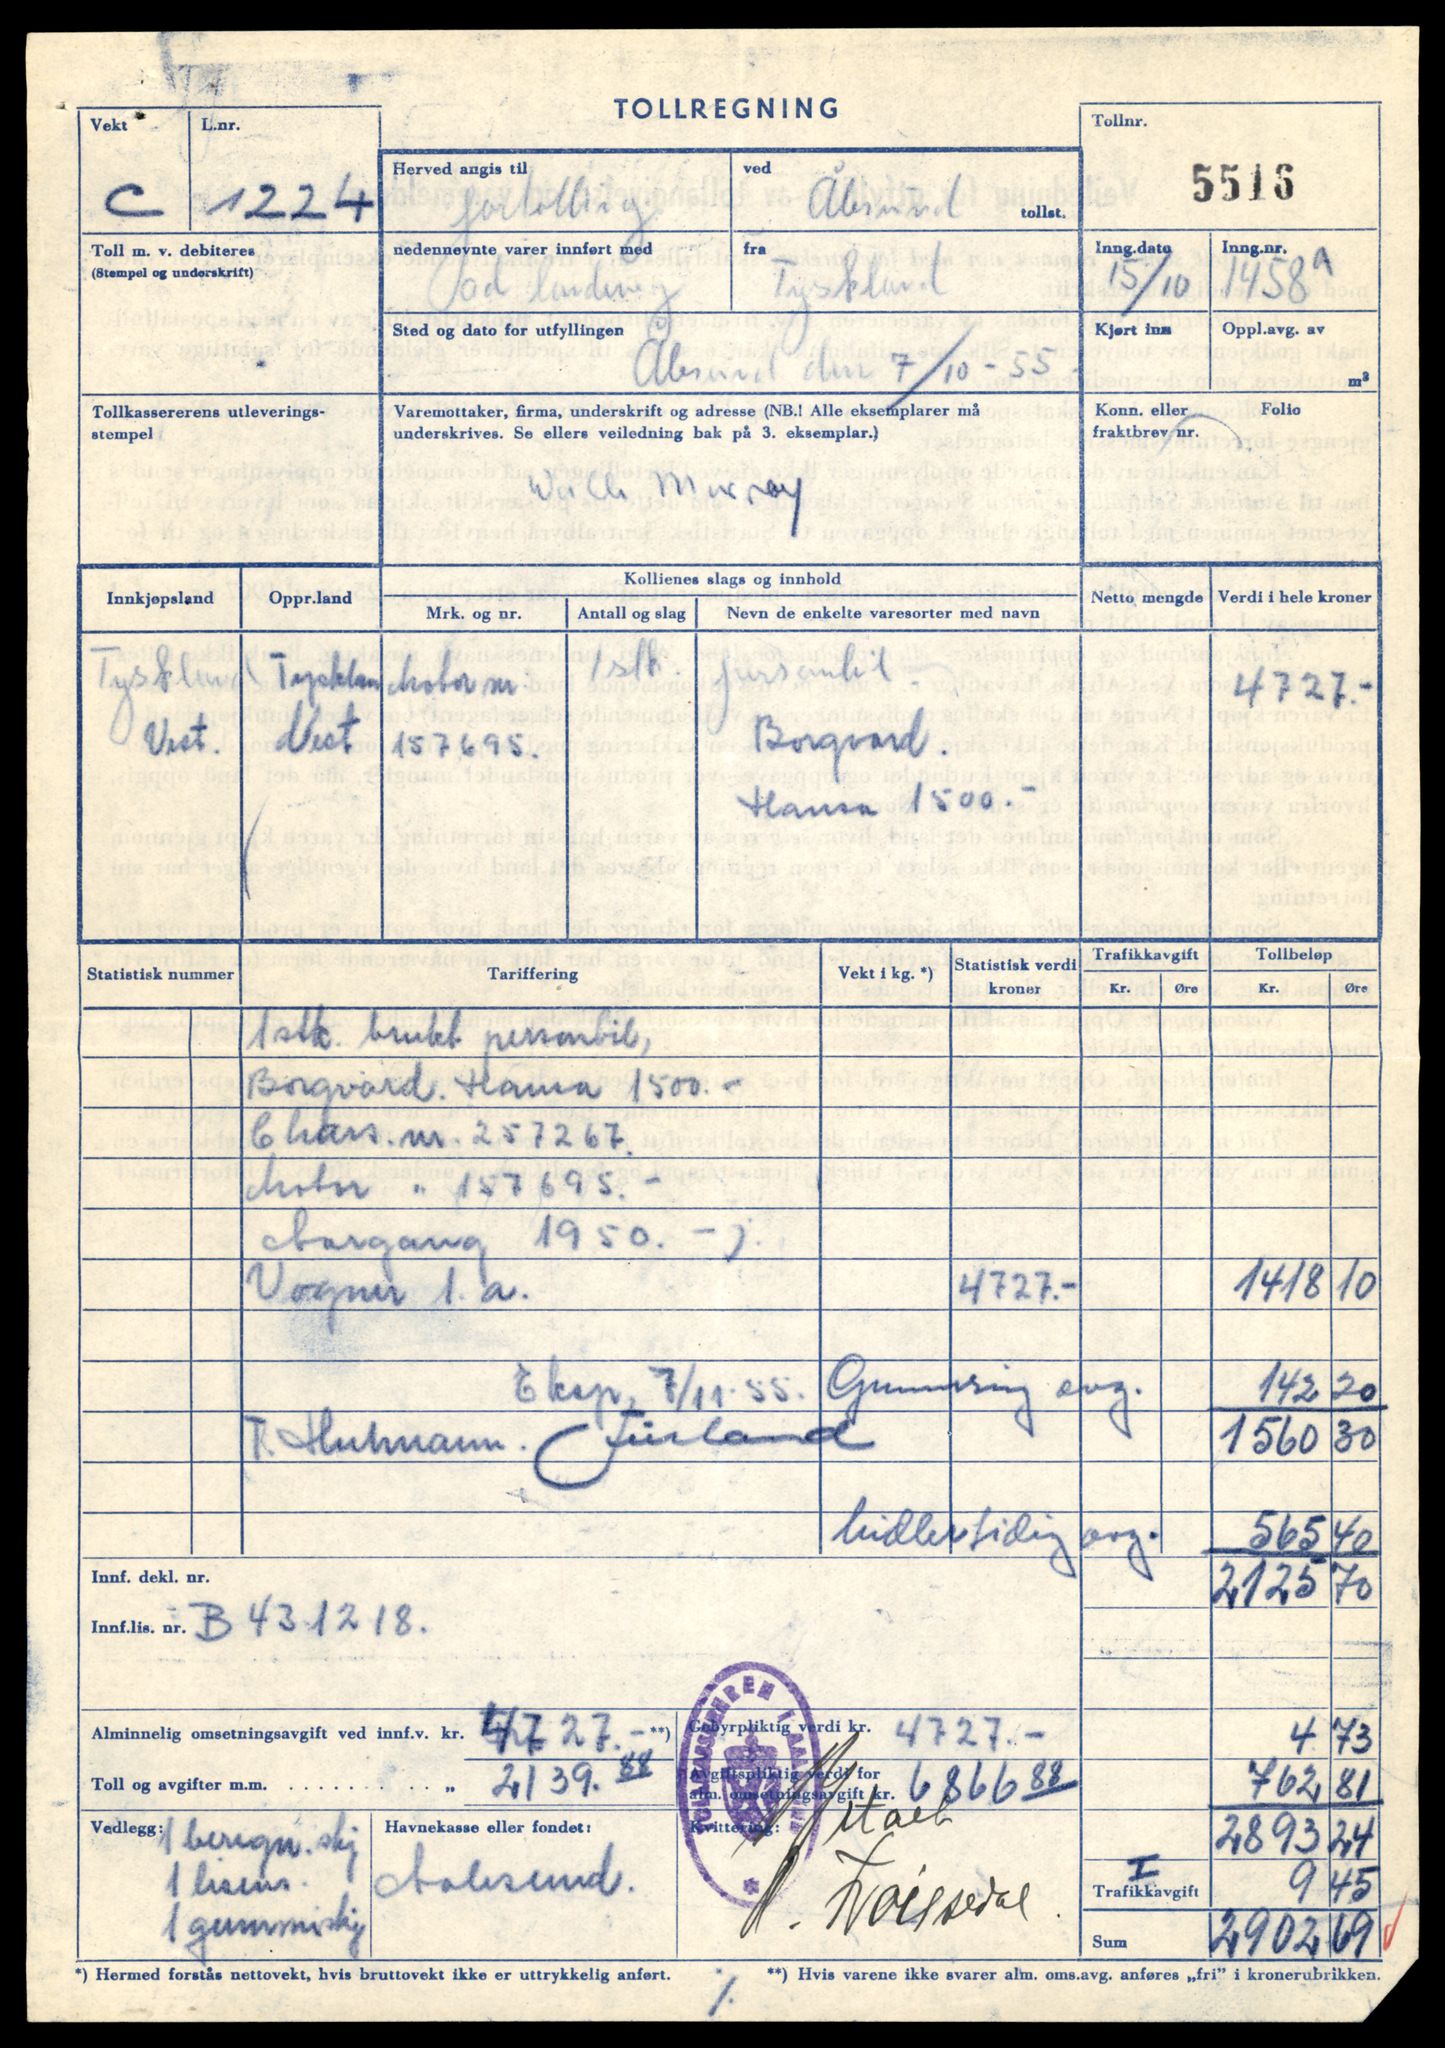 TOLLREGNING
Vekt
L.nr.
C 1224
Herved angis til
fortolling
ved
Ålesund tollst.
Tollnr.
5516
Toll m. v. debiteres
(Stempel og underskrift)
nedennevnte varer innført med
fra
Tyskland
Inng.dato
15/10
Inng.nr.
1458 a
Sted og dato for utfyllingen
Ålesund den 7/10-55.
Kjørt inn
Oppl.avg. av
m³
Tollkassererens utleverings-
stempel
Varemottaker, firma, underskrift og adresse (NB.! Alle eksemplarer må
underskrives. Se ellers veiledning bak på 3. eksemplar.)
Konn. eller
fraktbrev nr.
Folio
Murray
Innkjøpsland
Oppr.land
Kollienes slags og innhold
Mrk. og nr.
Antall og slag
Nevn de enkelte varesorter med navn
Netto mengde
Verdi i hele kroner
Tyskland Tysklan Motor nr 1 stk. personbil 4727.-
Vest. Vest 157695. Borgvard.
Hansa 1500.-
Statistisk nummer
Tariffering
Vekt i kg. *)
Statistisk verdi
kroner
Trafikkavgift
Kr. Øre
Tollbeløp
Kr. Øre
1 stk. brukt personbil,
Borgvard. Hansa 1500.-
Chass. nr 257267.
Motor " 157695.-
Aargang 1950. -
Vogner 1. a. 4727.- 1418 10
Eksp. 7/11-55. Gummiring avg. 142 20
1560 30
Midlertidig avg. 565 40
2125 70
Innf. dekl. nr.
Innf.lis. nr. B 431218.
Alminnelig omsetningsavgift ved innf.v. kr. 4727.- **)
Gebyrpliktig verdi kr. 4727.-
4 73
Toll og avgifter m.m. . . . . . . . . . „ 2139.88
Avgiftspliktig verdi for
alm. omsetningsavgift kr. 6866 88
762 81
Vedlegg:
1 beregn. skj
1 lisens.
1 gummiskj
Havnekasse eller fondet:
Aalesund.
Kvittering:
2893 24
I
Trafikkavgift 9 45
Sum 2902 69
*) Hermed forstås nettovekt, hvis bruttovekt ikke er uttrykkelig anført.
**) Hvis varene ikke svarer alm. oms.avg. anføres „fri” i kronerubrikken.